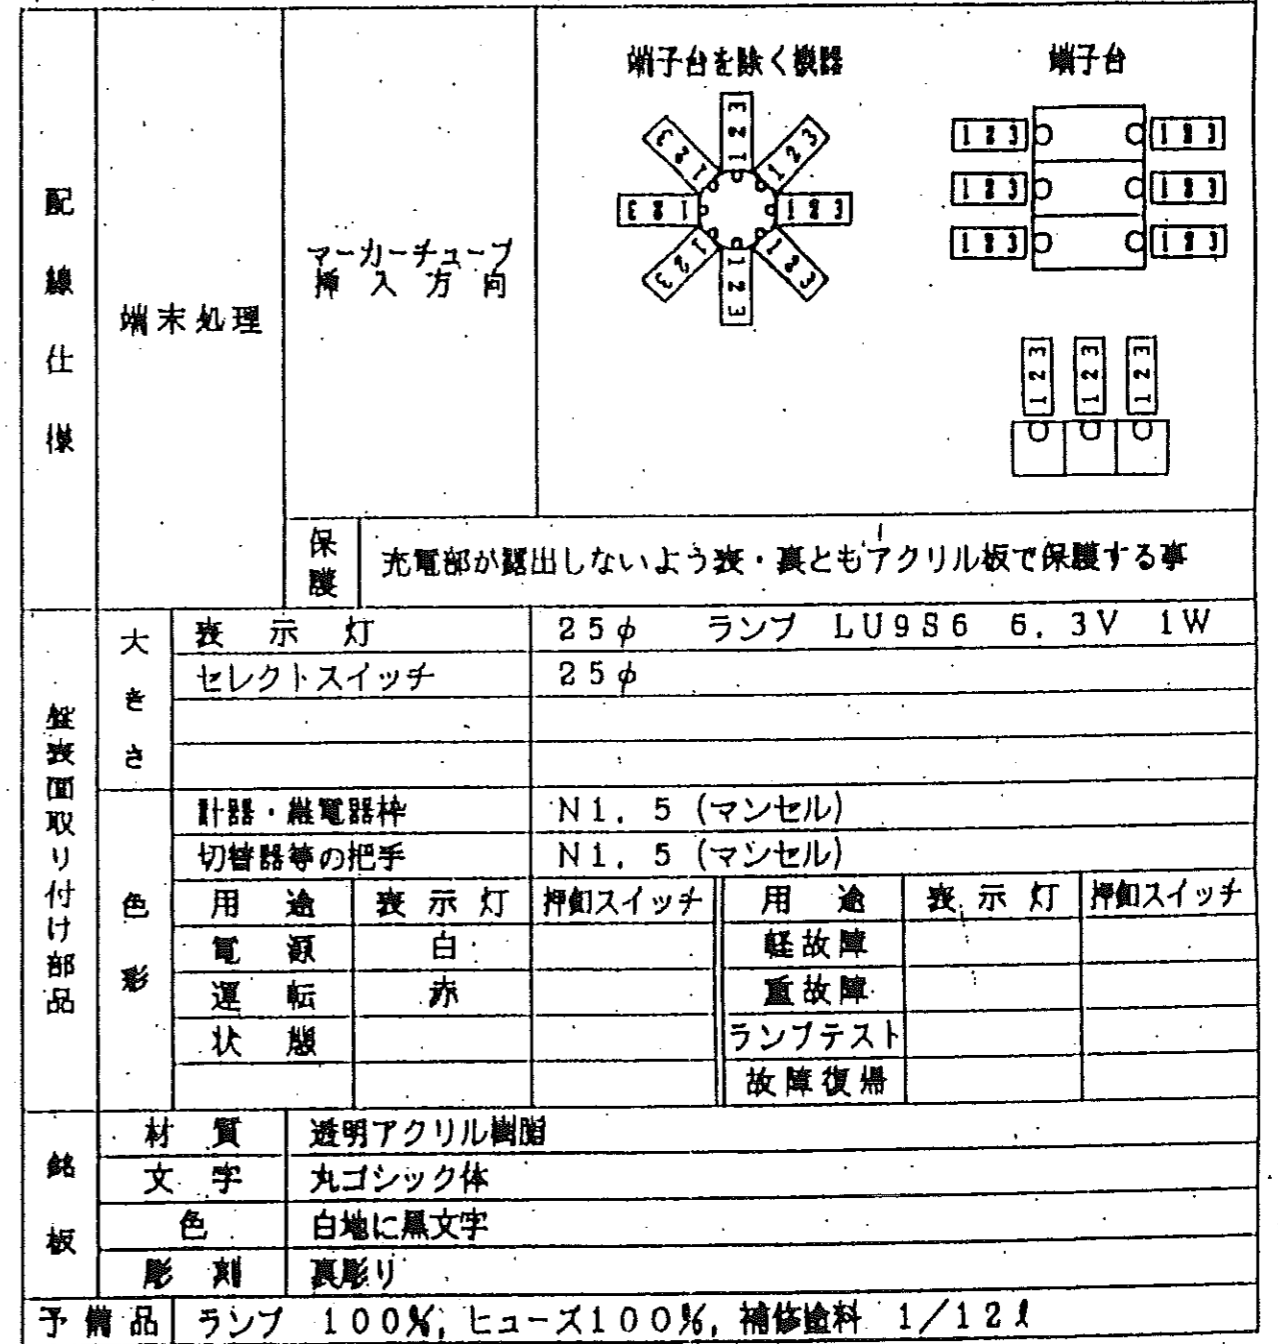 端子台を除く機器　端子台
1 2 3　1 2 3　1 2 3　1 2 3　1 2 3　1 2 3　1 2 3　1 2 3
1 2 3　1 2 3
1 2 3　1 2 3
1 2 3　1 2 3
1 2 3　1 2 3　1 2 3
配線仕様
端末処理
マーカーチューブ
挿入方向
保護　充電部が露出しないよう表・裏ともアクリル板で保護する事
盤表面取り付け部品
大きさ
表示灯　25φ　ランプ　LU9S6　6.3V　1W
セレクトスイッチ　25φ
色彩
計器・継電器枠　N1.5(マンセル)
切替器等の把手　N1.5(マンセル)
用途　表示灯　押釦スイッチ　用途　表示灯　押釦スイッチ
電源　白　軽故障
運転　赤　重故障
状態　ランプテスト
故障復帰
銘板
材質　透明アクリル樹脂
文字　丸ゴシック体
色　白地に黒文字
彫刻　裏彫り
予備品　ランプ　100%,ヒューズ100%,補修塗料　1/12ℓ